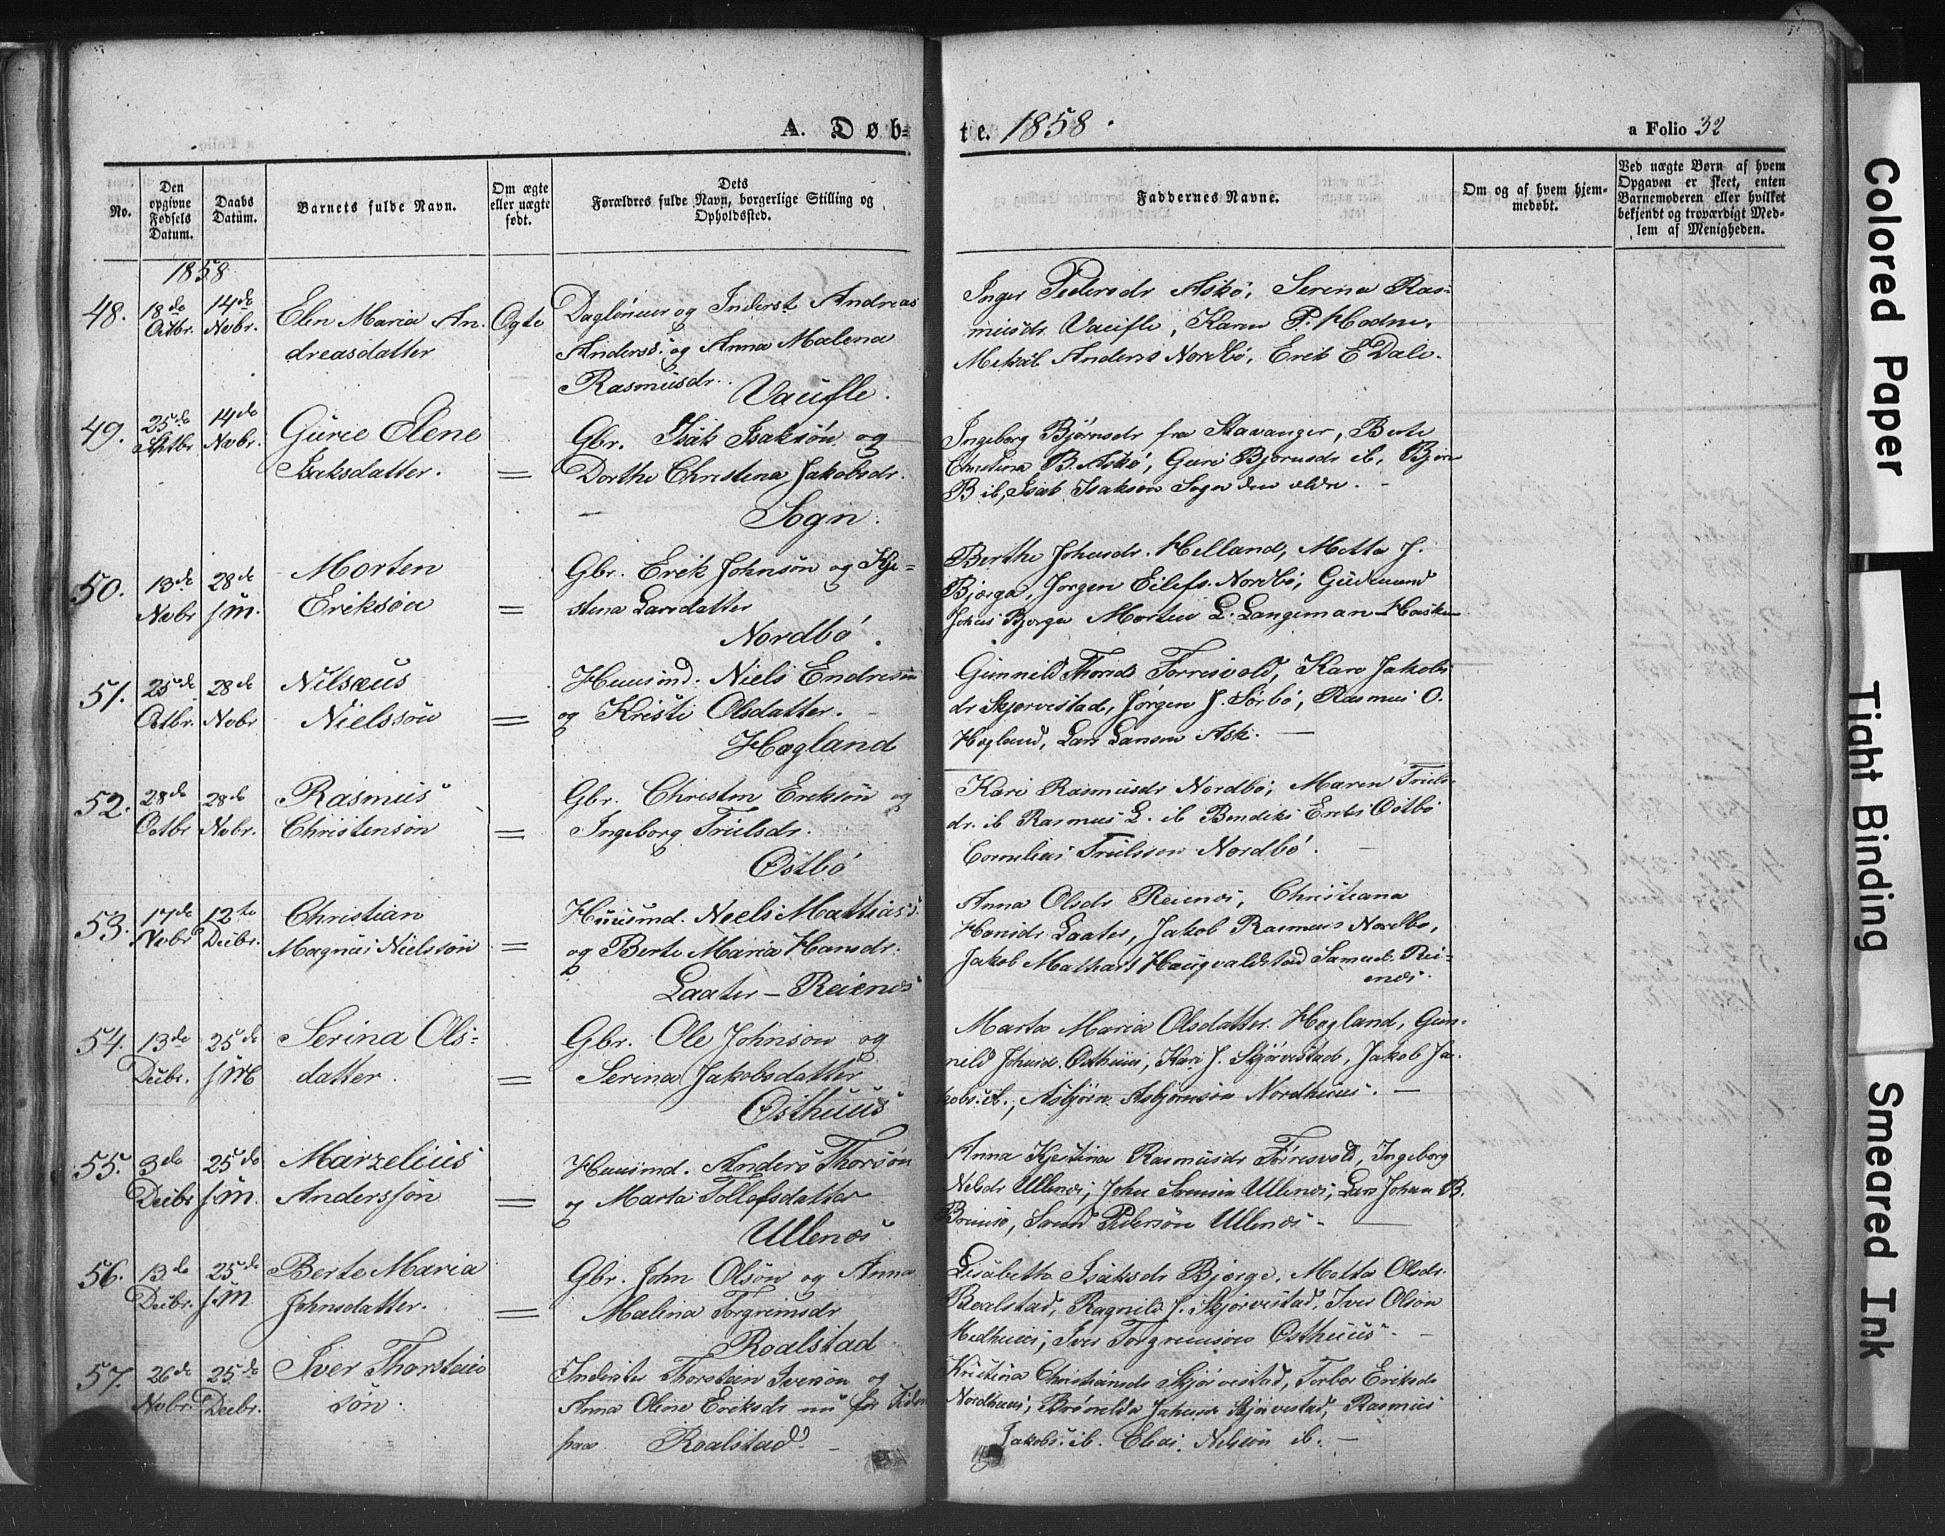 A. Døb-
te. 1858.
a Folio 32
No.
Den opgivne Fødsels Datum.
Daabs Datum.
Barnets fulde Navn.
Om ægte eller uægte født.
Dets Forældres fulde Navn, borgerlige Stilling og Opholdssted.
Faddernes Navne.
Om og af hvem hjemmedøbt.
Ved uægte Børn af hvem Opgaven er skeet, enten Barnemoderen eller hvilket bekjendt og troværdigt Medlem af Menigheden.
1858
48. 18de Octbr. 14de Nvbr. Elen Maria An-
dreasdatter Ogte
Daglønner og Inderst Andreas
Anders: og Anna Malena
Rasmusdr.
Inger Pedersdr Askö, Serina Ras-
musdr. , Karen P. Hodne,
Anders Nordbö, Erik E Dale.
49. 25de Nvbr. 14de Gurie Elene
Isaksdatter. =
Gbr. Isak Isaksön og
Dorthe Christina Jakobsdr.
Sogn.
Ingeborg Björnsdr fra Stavanger, Berte
Christina B. Askö, Guri Bjornsdr ib, Bjørn
B ib, Isak Isaksøn Sogn den ældre. -
50. 13de Nvbr 28de s.M. Morten
Eriksön =
Gbr. Erik Johnsön og Kje-
stena Larsdatter
Nordbö.
Berthe Johnsdr. Helland, Metta J.
Bjørga, Jørgen Eilefs. Nordbö, Gudmund
Johns Bjorga Morten L. Langeman
51. 25de Octbr. 28de Nvbr Nilsæus
Nielssön =
Huusmd. Niels Endresön
og Kristi Olsdatter.
Hægland
Gunnild Thords Torresvold, Kari Jakobs
dr Skjørvestad, Jörgen J. Sörbö, Rasmus O.
Hægland, Lars Larsen Ask.
52. 28de Octbr 28de Nvbr. Rasmus
Christensön =
Gbr. Christen Eriksön og
Ingeborg Trulsdr.
Østbö
Kari Rasmusdr Nordbö, Maren Truls-
dr. ib Rasmus L. ib Bendiks Østbö
Cornelius Trulssen Nordbö.
53. 17de Nvbr 12te Decbr. Christian
Magnus Nielssön =
Huusmd. Neels Mattias:
og Berte Maria Hansdr.
Laater - Reienæs
Anna Olsdr Reienæs, Christiana
Hansdr. Laater, Jakob Rasmus Nordbö,
Jakob Mathas: Haugvaldstad Samuel Rei-
enæs.
54. 13de Decbr. 25de s.M Serina Ols-
datter. =
Gbr. Ole Johnson og
Serina Jakobsdatter
Østhuus
Marta Maria Olsdatter. Hægland, Gun-
nild Østhuus, Kari J. Skjørvestad, Jakob Ja-
kobs: ib., Asbjörn Asbjornsön Nordhuus. -
55. 3de Decbr 25de s.M. Marzelius
Anderssön =
Huusmd. Anders Thorsön
og Marta Tollefsdatter
Ullenæs
Anna Kjestina Rasmusdr Tørresvold, Ingeborg
Nelsdr Ullenæs, John Ullenæs, Lars Johan B.
Pedersön Ullenæs -
56. 13de Decbr. 25de s.M. Berte Maria
Johnsdatter. =
Gbr. John Olsön og Anna
Malena Torgrimsdr
Roalstad
Lisabetta Isaksdr Bjørge, Metta Olsdr.
Roalstad, Ragnild J. Skjørvestad, Iver Olsön
Medhuus, Iver Torgrimsön Østhuus -
57. 26de Nvbr. 25de Decbr. Iver Thorstein
sön.
Inderster Thorstein Iversön og
Anna Oline Eriksdr nu for Tiden
paa Roalstad -
Kristina Christiansdr Skjørvestad, Torbor Eriksdr
Nordhuus, Brönelda Skjørvestad, Rasmus
Jakobs: ib. Elias Nelsön ib. -
Colored Paper
Tight Binding
Smeared Ink